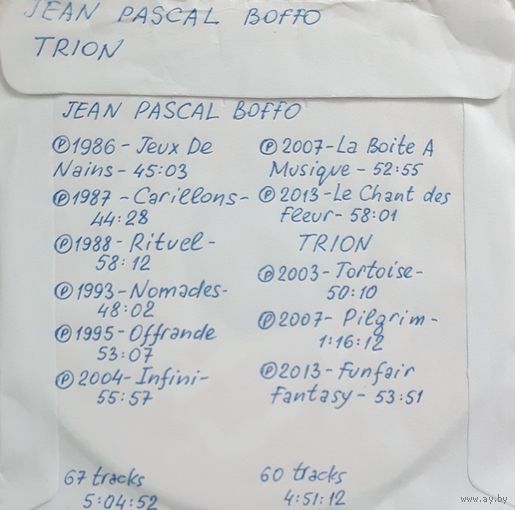 JEAN PASCAL BOFFO
TRION
JEAN PASCAL BOFFO
℗1986 - Jeux De
Nains - 45:03
℗1987 - Carillons -
44:28
℗1988 - Rituel -
58:12
℗1993 - Nomades -
48:02
℗1995 - Offrande
53:07
℗2004 - Infini -
55:57
67 tracks
5:04:52
℗2007 - La Boite A
Musique - 52:55
℗2013 - Le Chant des
fleur - 58:01
TRION
℗2003 - Tortoise -
50:10
℗2007 - Pilgrim -
1:16:12
℗2013 - Funfair
Fantasy - 53:51
60 tracks
4:51:12
www.ay.by